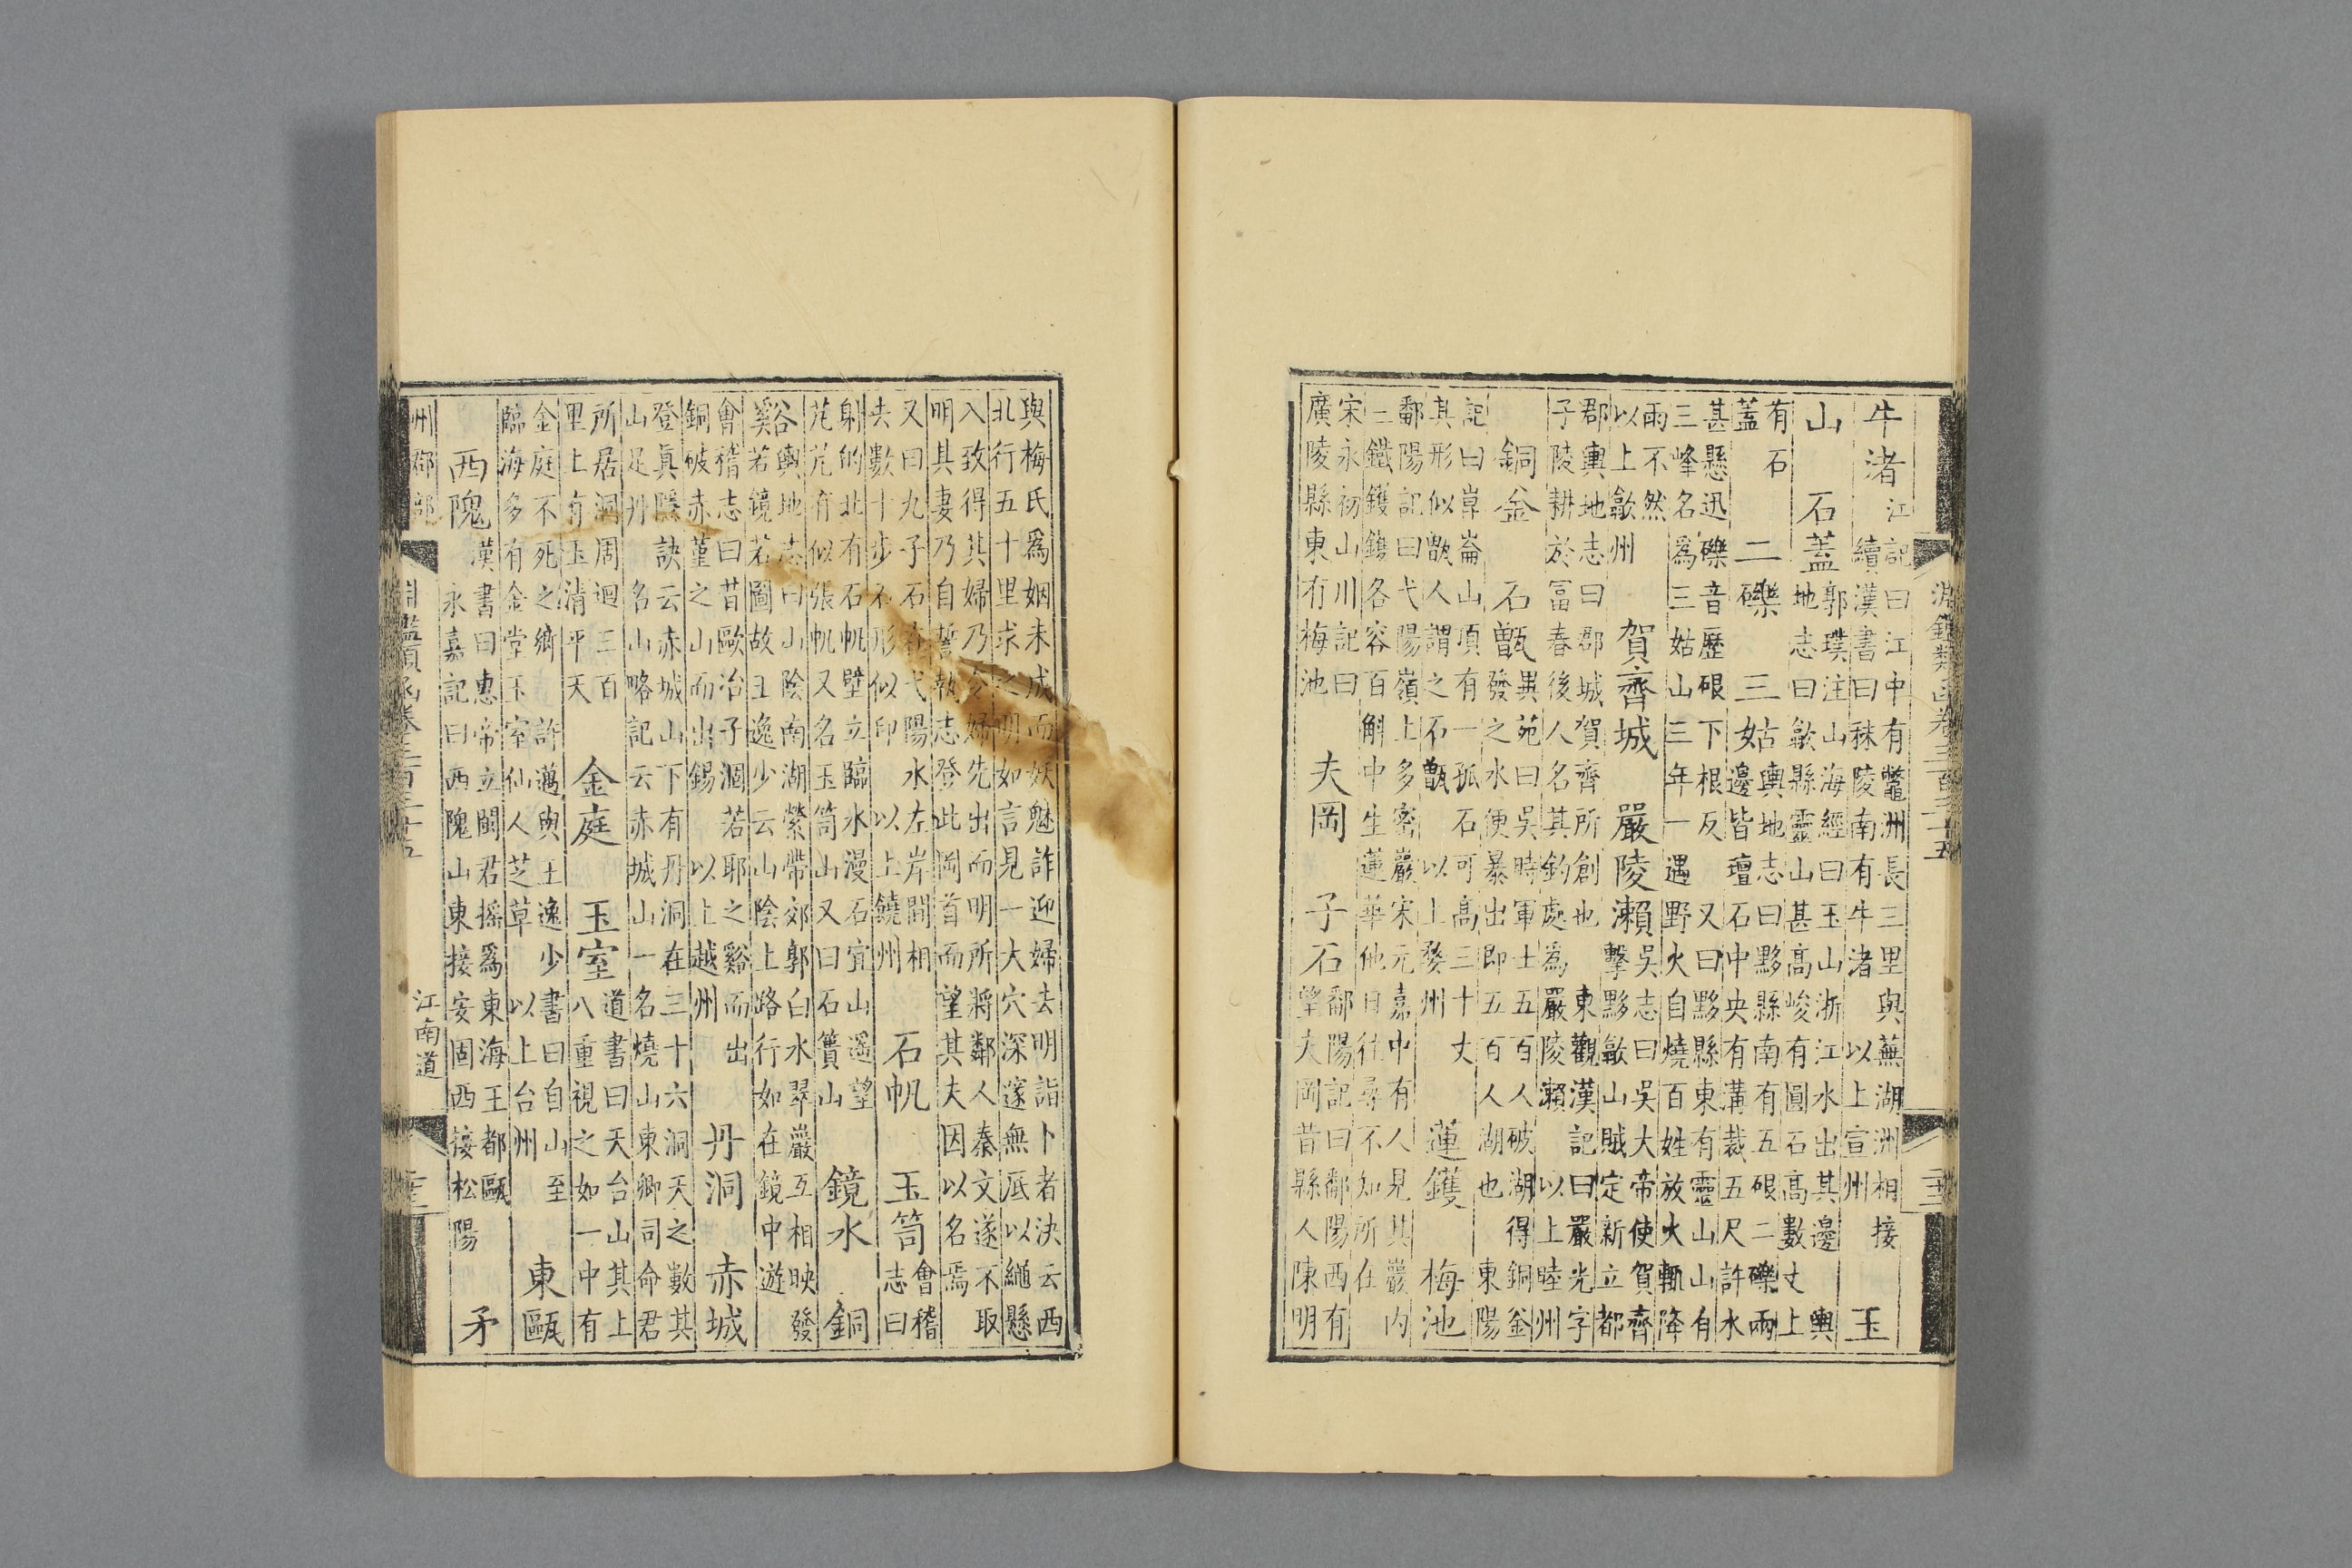 牛渚 江記曰江中有鼈洲長三里與蕪湖洲相接
續漢書曰秣陵南有牛渚 以上宣州 玉
山 石蓋 郭璞注山海經曰玉山浙江水出其邊 輿
地志曰歙縣靈山甚高峻有圓石高數丈上
有石
蓋 二礫 三姑 輿地志曰黟縣南有五硍二礫兩
邊皆壇石中央有溝裁五尺許水
甚懸迅礫音歷硍下根反 又曰黟縣東有靈山山有
三峰名爲三姑山三年一遇野火自燒百姓放火輒降
雨不然
以上歙州 賀齊城 嚴陵瀨 吳志曰吳大帝使賀齊
擊黟歙山賊定新立都
郡輿地志曰郡城賀齊所創也 東觀漢記曰嚴光字
子陵耕於富春後人名其釣處爲嚴陵瀨 以上睦州
銅金 石甑 異苑曰吳時軍士五百人破湖得銅釡
發之水便暴出即五百人湖也 東陽
記曰崑崙山項有一孤石可高三十丈
其形似甑人謂之石甑 以上婺州 蓮鑊 梅池
鄱陽記曰弋陽嶺上多密巖宋元嘉中有人見其巖内
三鐵鑊鑴各容百斛中生蓮華他日往尋不知所在
宋永初山川記曰
廣陵縣東有梅池 夫岡 子石 鄱陽記曰鄱陽西有
望夫岡昔縣人陳明
與梅氏爲姻未成而妖魅詐迎婦去明詣卜者決云西
北行五十里求之明如言見一大穴深邃無底以繩懸
入致得其婦乃令婦先出而明所將鄰人秦文遂不取
明其妻乃自誓執志登此岡首而望其夫因以名焉
又曰九子石在弋陽水左岸間相
去數十步不形似印 以上饒州 石帆 玉笥 會稽
志曰
射的北有石帆壁立臨水漫石宜山遥望
芃芃有似張帆又名玉笥山又曰石簣山 鏡水 銅
谷輿地志曰山陰南湖縈帶郊郭白水翠巖互相映發
奚若鏡若圖故王逸少云山陰上路行如在鏡中遊
會稽志曰昔歐冶子涸若耶之谿而出
銅破赤堇之山而出錫 以上越州 丹洞 赤城
登真隱訣云赤城山下有丹洞在三十六洞天之數其
山足丹 名山略記云赤城山一名燒山東卿司命君
所居洞周迴三百
里上有玉清平天 金庭 玉室 道書曰天台山其上
八重視之如一中有
金庭不死之鄉 許邁與王逸少書曰自山至
臨海多有金堂玉室仙人芝草 以上台州 東甌
西隗 漢書曰惠帝立閩君搖爲東海王都甌
永嘉記曰西隗山東接安固西接松陽 矛
州郡部
淵鑑類函卷三百三十五
江南道